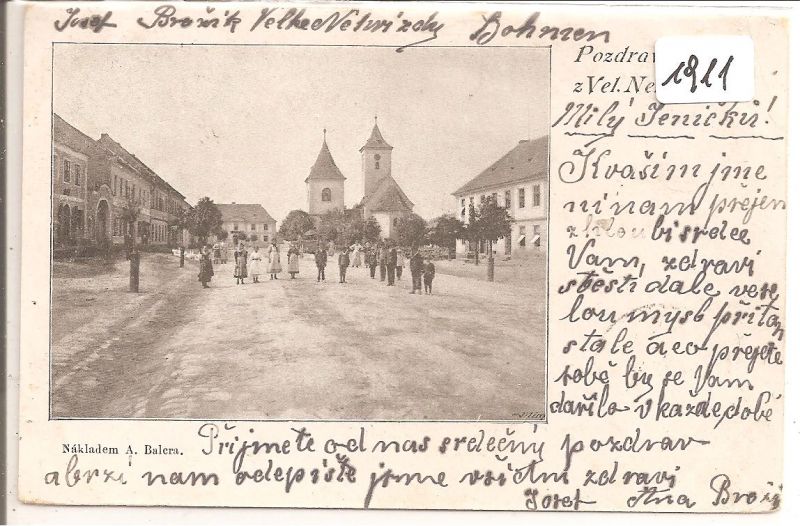 Josef Brožik Velke Nehvizdy Bohmen
Pozdrav
z Vel. Ne
1911
Milý Jeničků!
Kvašim jme
ninam přejem
z bi srdce
Vam, zdravi
stěstí dale vese
lou mysl přitom
stale áco přejete
sobě by se Vam
dařilo v každe době
Nákladem A. Balcra.
Přijmete od nas srdečný pozdrav
a brzi nam odepiště jsme vsichni zdravi
Josef Ana Broži